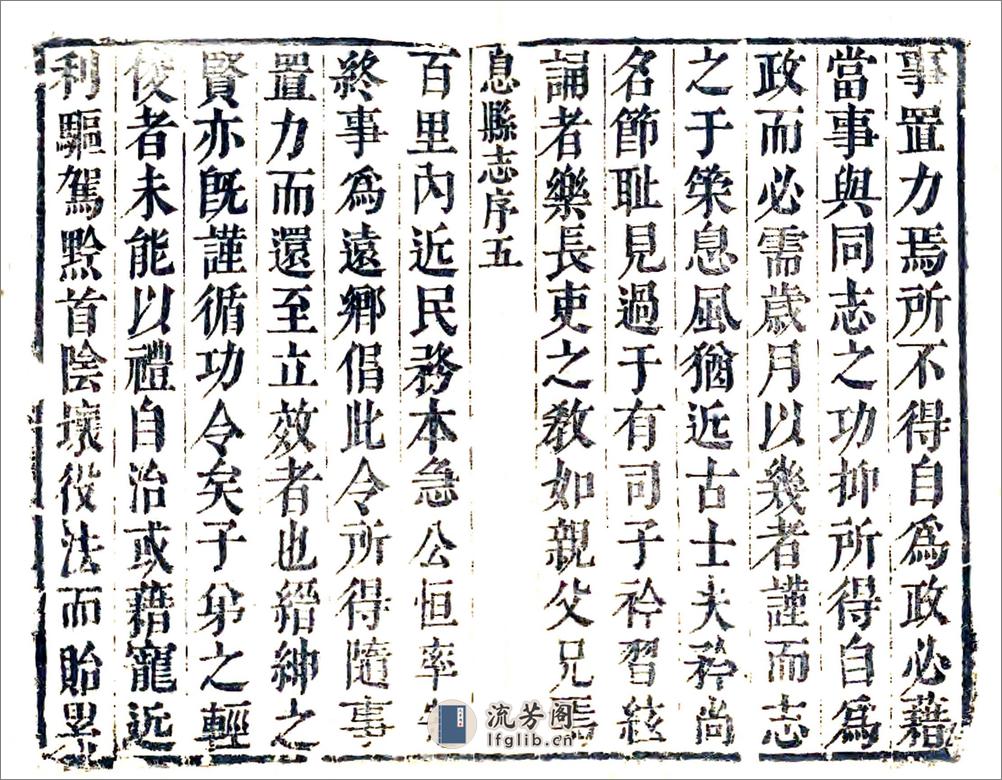 事置力焉所不得自為政必藉
當事與同志之功抑所得自為
政而必需歲月以幾者謹而志
之于策息風猶近古士夫矜尚
名節耻見過于有司子衿習絃
誦者樂長吏之敎如親父兄焉
息縣志序五
百里內近民務本急公恒率先
終事爲遠鄉倡此令所得隨事
置力而還至立效者也縉紳之
賢亦旣謹循功令矣子弟之輕
俊者未能以禮自治或藉寵近
利驅駕黔首陰壞役法而貽里
流芳阁
lfglib.cn